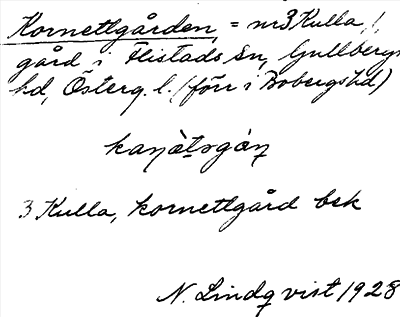 Kornettgården, = nr 3 Kulla,
gård i Flistads Sn, Gullbergs
hd, Österg. l. (förr i Bobergs hd)
kaŋètsgáŋ
3 Kulla, kornettgård bek
N. Lindqvist 1928